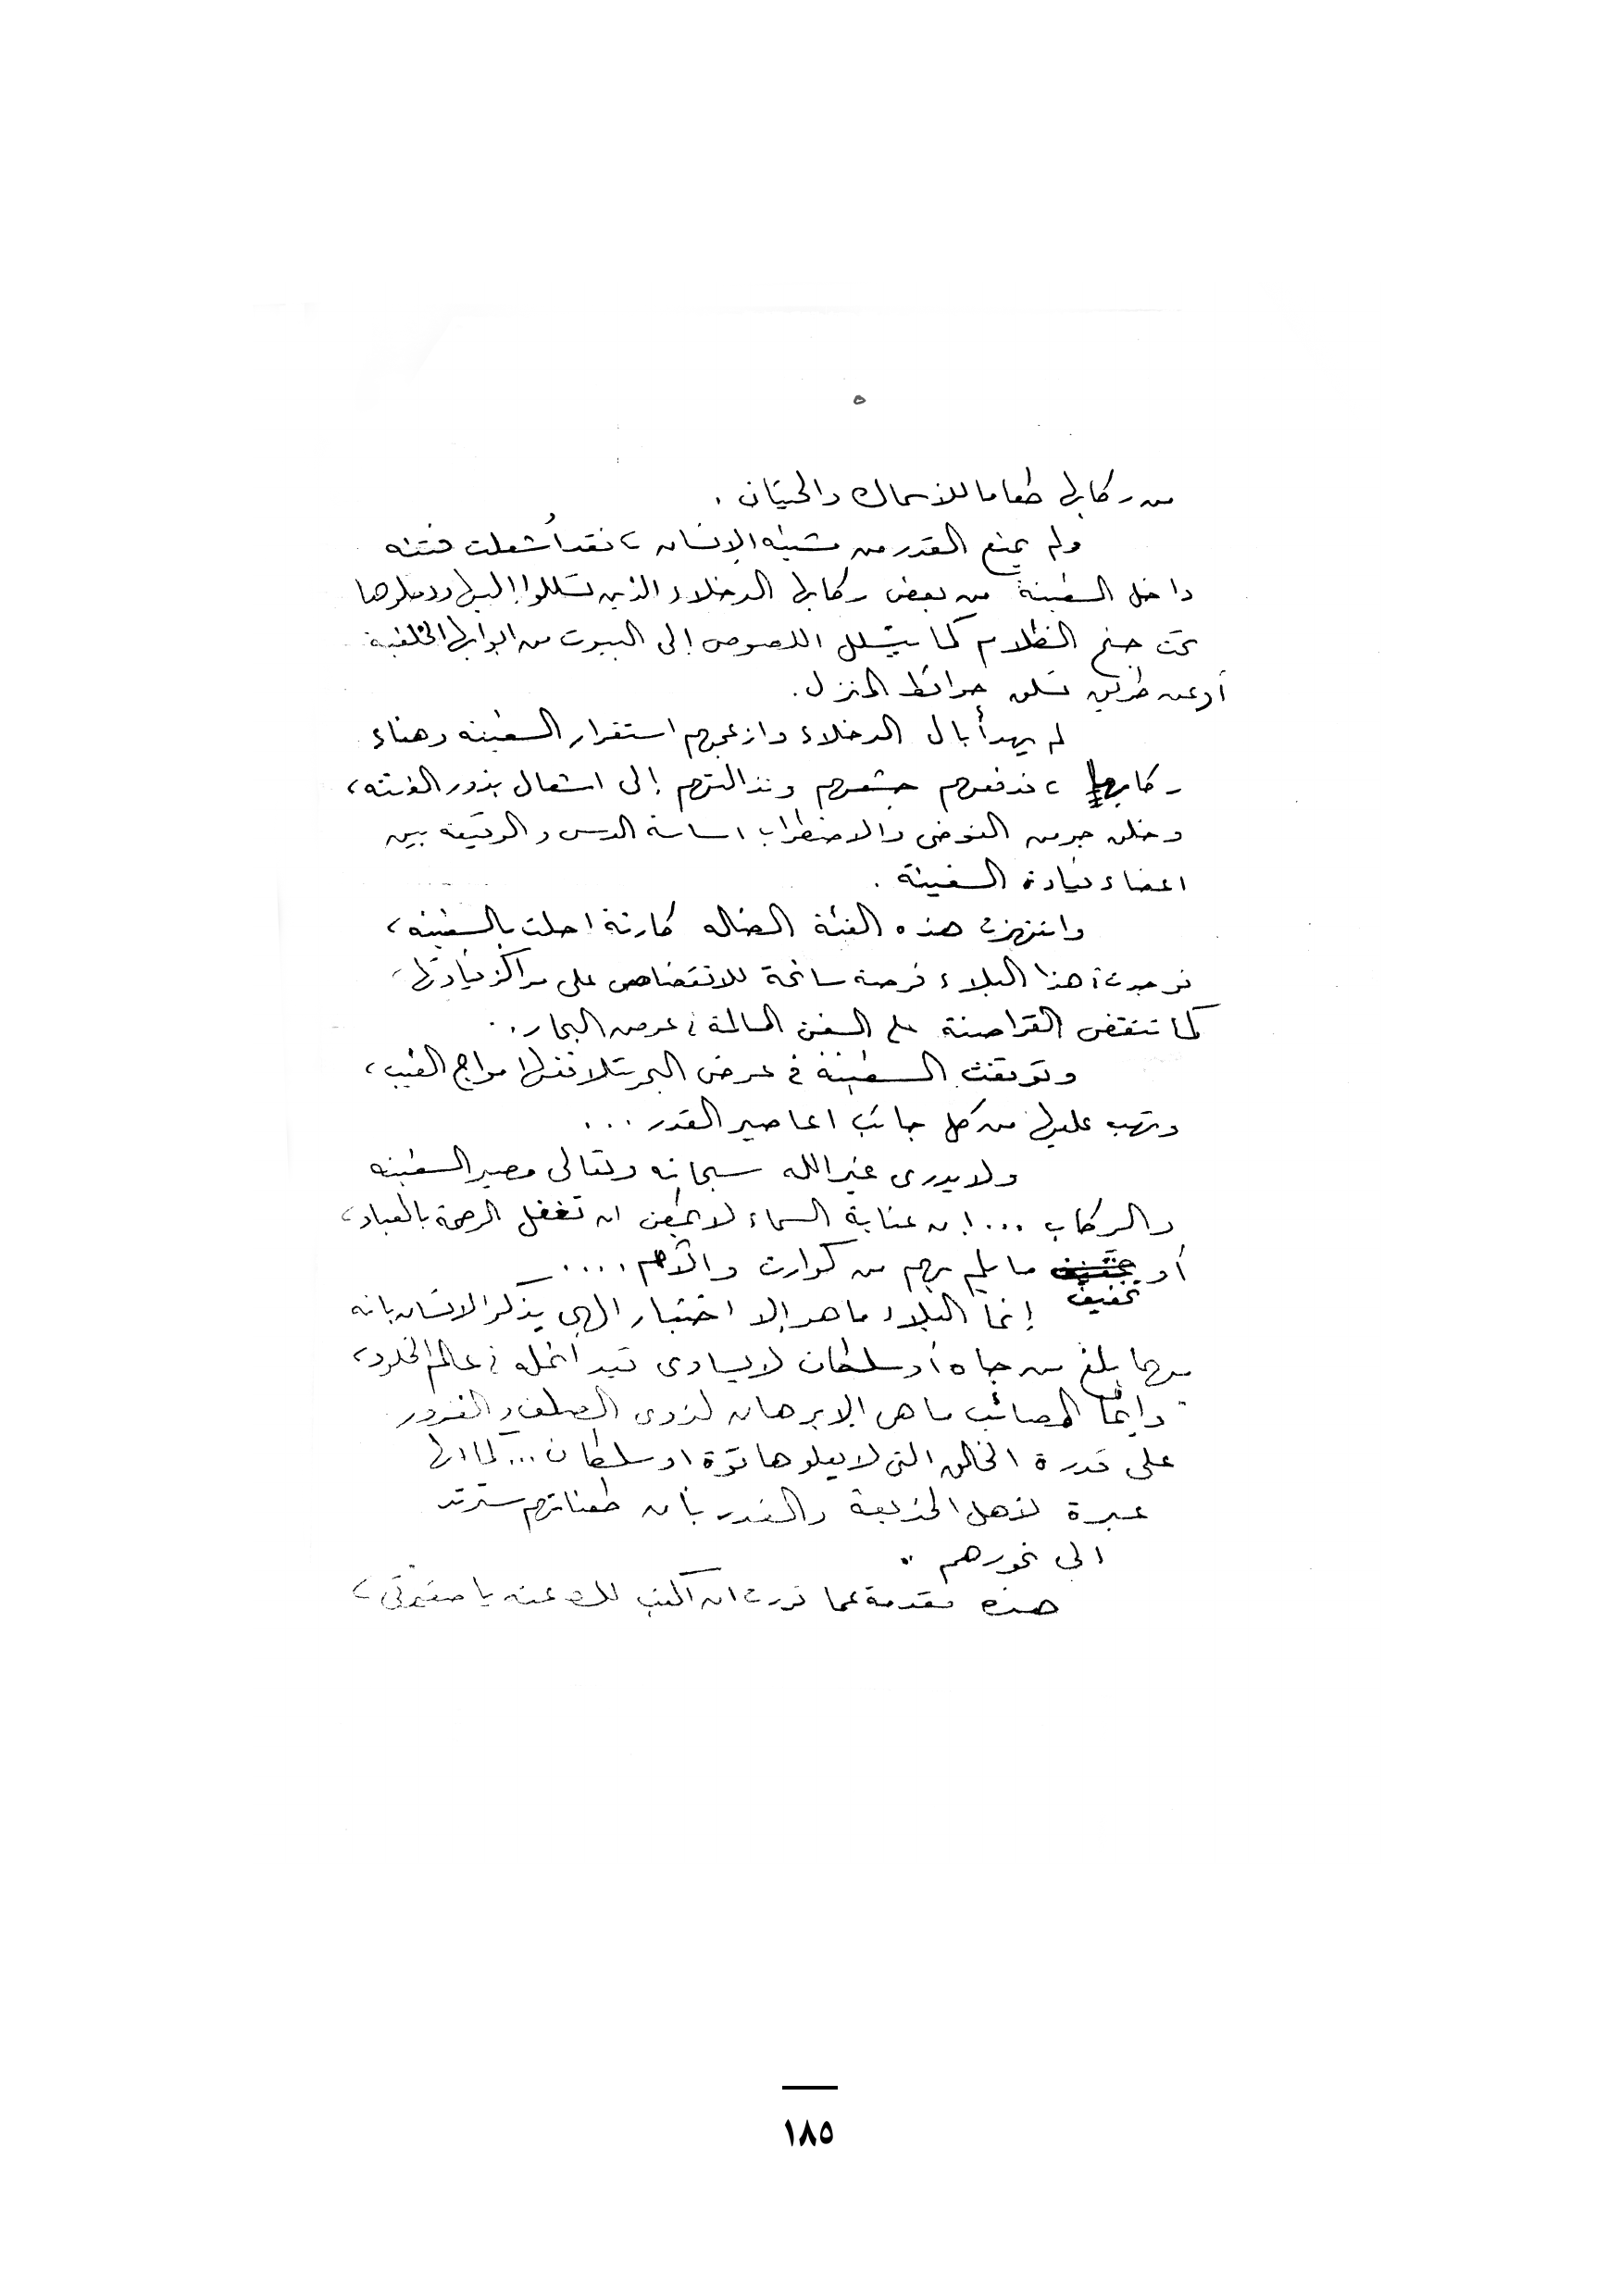 ٥
من ركابها طعاما للأسماك والحيتان .
ولم يمنع القدر من مشيئه الإنسان ، فقد أُشعلت فتنه
داخل السفينة من بعض ركابها الدخلاء الذين تسللوا إليها ودخلوها
تحت جنح الظلام كما يتسلل اللصوص إلى البيوت من ابوابها الخلفية
أو عن طريق تسلق حوائط المنزل .
لم يهدأ بال الدخلاء وازعجهم استقرار السفينه وهناء
ركابها ، فدفعهم جشعهم ونذالتهم إلى اشعال بذور الفتنه ،
وخلق جو من الفوضى والاضطراب اساسة الدس والوقيعة بين
اعضاء قيادة السفينة .
وانتهزت هذه الفئة الضاله كارثة احلت بالسفينه ،
فوجدت فى هذا البلاء فرصة سانحة للانقضاض على مراكز قيادتها ،
كما تنقض القراصنة على السفن السالمة فى عرض البحار . .
وتوقفت السفينة فى عرض البحر تتلاقفها امواج الغيب ،
وتهب عليها من كل جانب اعاصير القدر ...
ولا يدرى غير الله سبحانه وتعالى مصير السفينه
والركاب ... إن عناية السماء لا يمكن ان تغفل الرحمة بالعباد ،
أو تخفيف ما يلم بهم من كوارث وآلام ....
إنما البلاء ما هو إلا اختبار الهى يذكر الانسان بانه
مهما بلغ من جاه أو سلطان لا يساوى قيد انمله فى عالم الخلود ،
وإنما المصائب ما هى إلا برهان لذوى الصلف والغرور
على قدرة الخالق التى لا يعلوها قوة او سلطان ... كما انها
عبرة لأهل الخديعة والغدر بأن طعناتهم سترتد
الى نحورهم ..
هذه مقدمة عما قررت ان اكتب لك عنه يا صفوتى ،
١٨٥